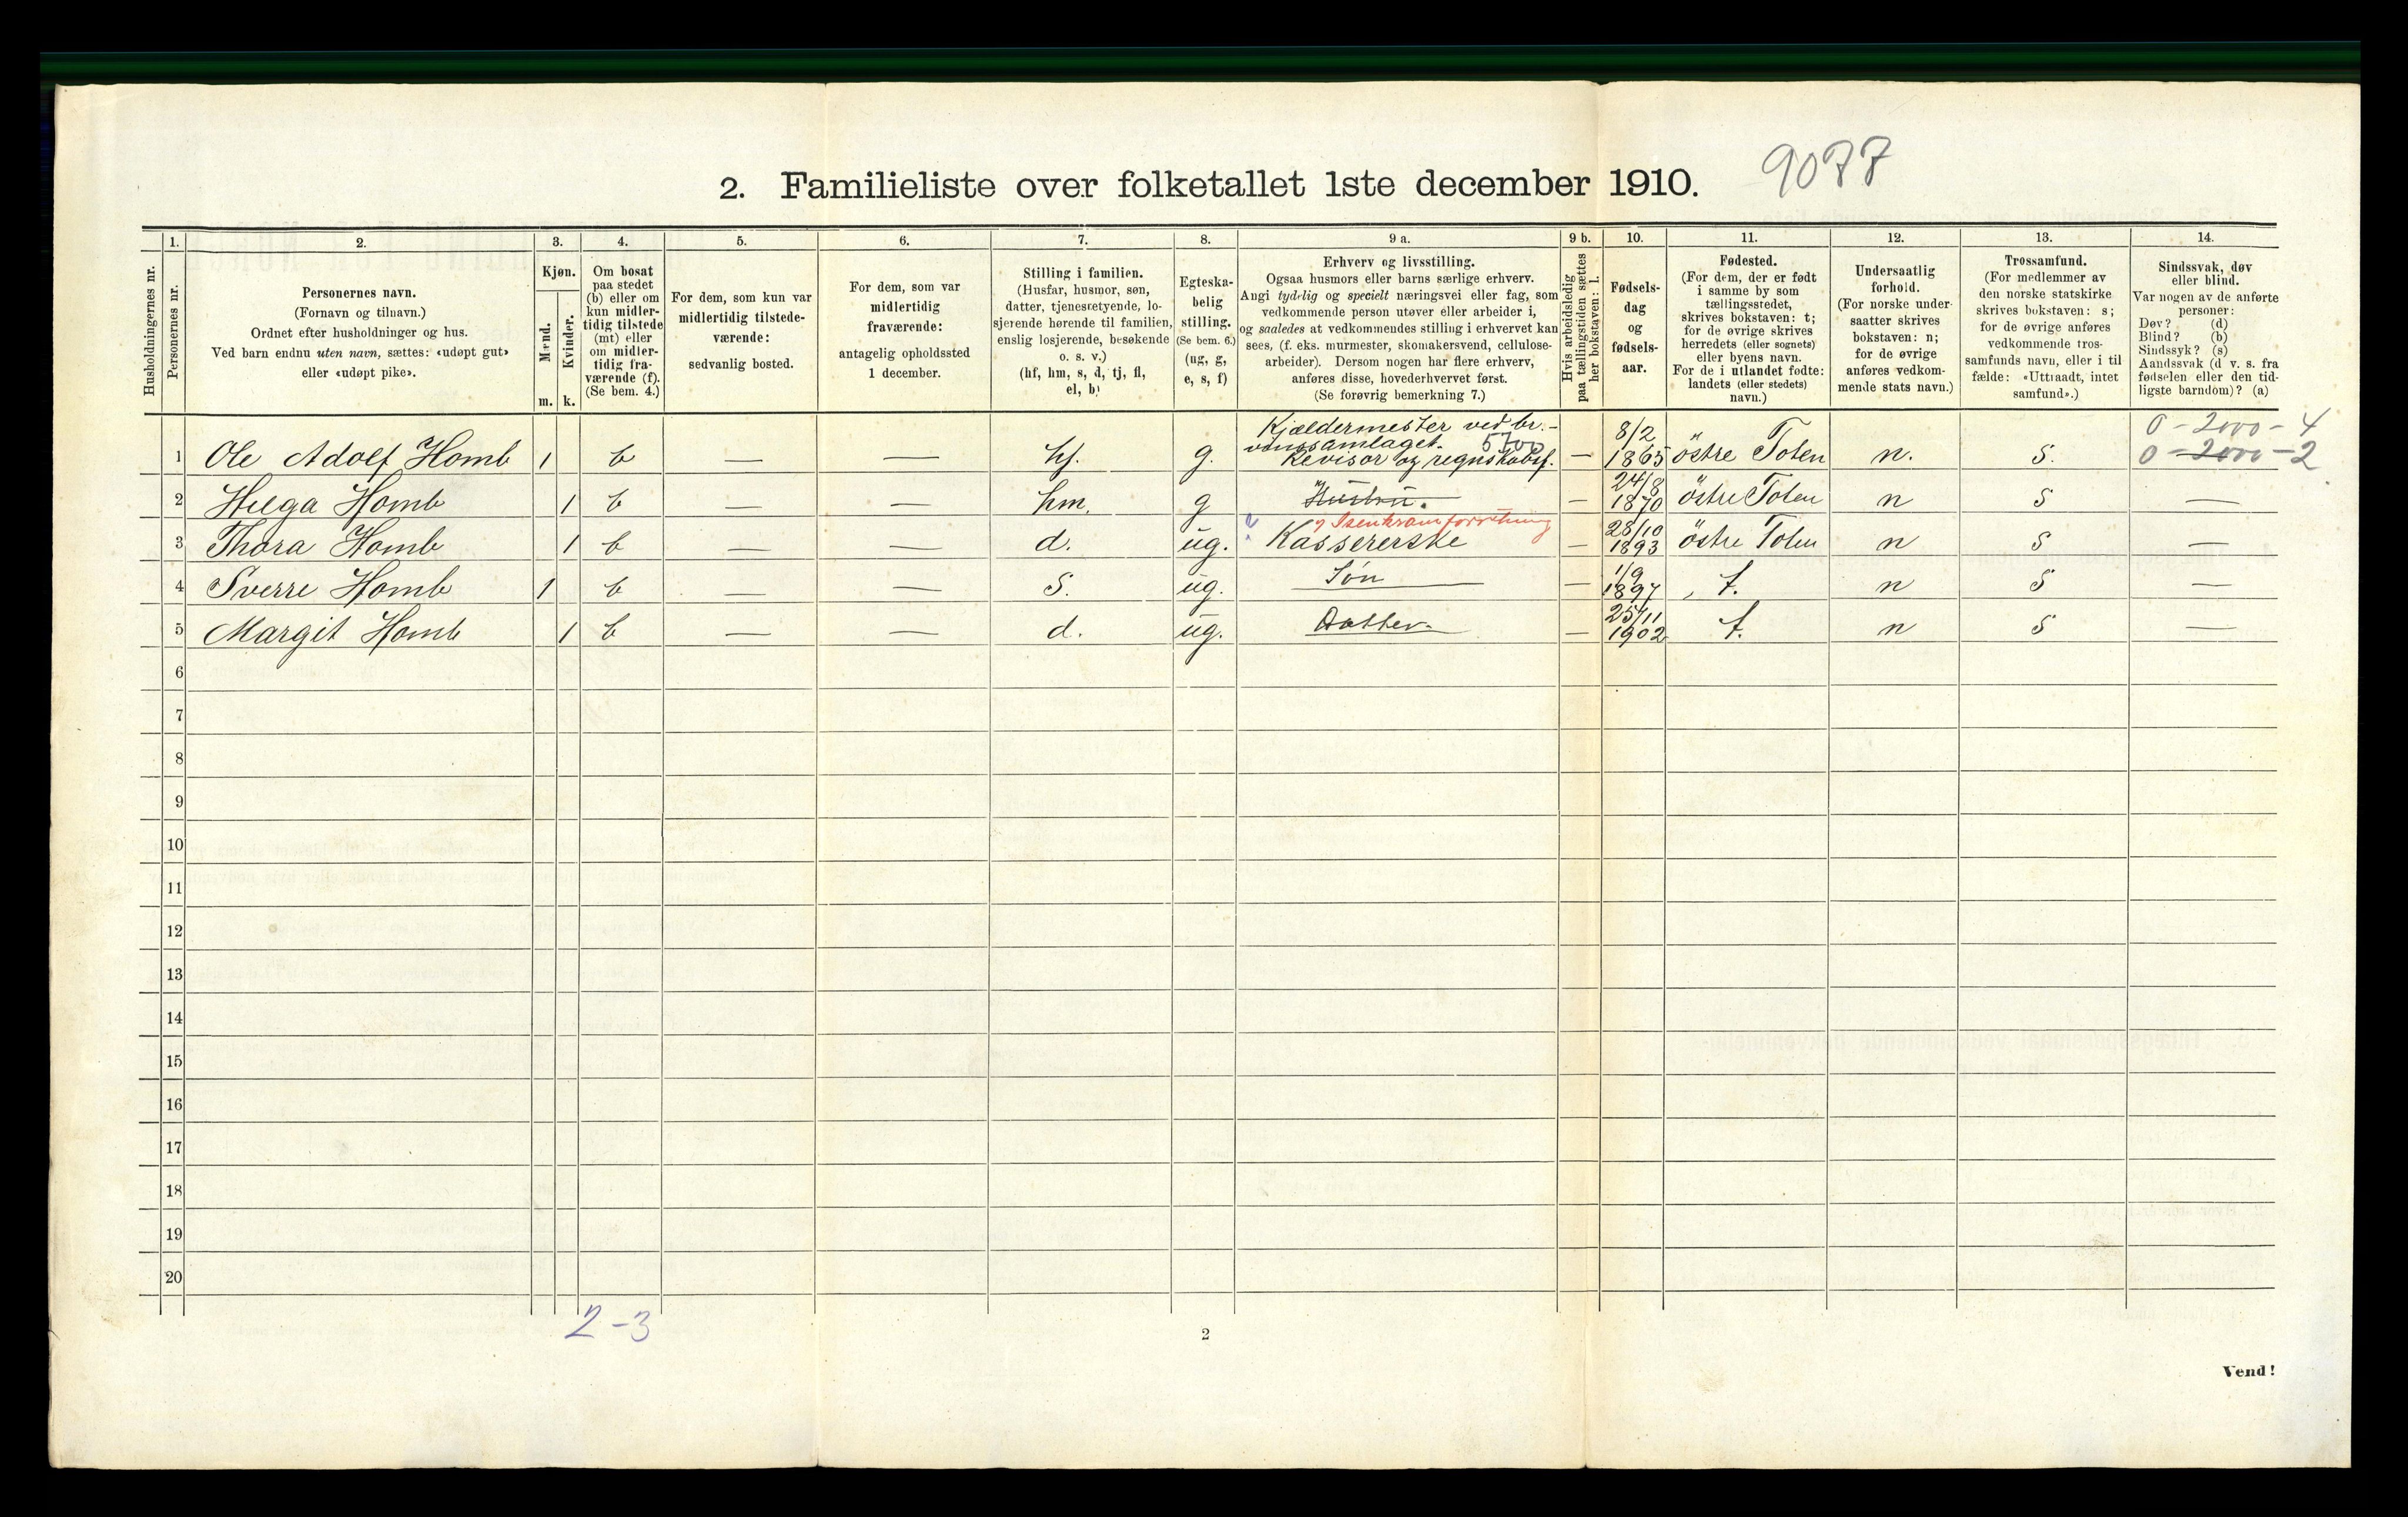 2. Familieliste over folketallet 1ste december 1910. 9077
Husholdningernes nr.
1.
Personernes nr.
2.
Personernes navn.
(Fornavn og tilnavn.)
Ordnet efter husholdninger og hus.
Ved barn endnu uten navn, sættes: «udøpt gut»
eller «udøpt pike».
3.
Kjøn.
Mænd.
Kvinder.
m. k.
4.
Om bosat
paa stedet
(b) eller om
kun midler-
tidig tilstede
(mt) eller
om midler-
tidig fra-
værende (f).
(Se bem. 4.)
5.
For dem, som kun var
midlertidig tilstede-
værende:
sedvanlig bosted.
6.
For dem, som var
midlertidig
fraværende:
antagelig opholdssted
1 december.
7.
Stilling i familien.
(Husfar, husmor, søn,
datter, tjenestetyende, lo-
sjerende hørende til familien,
enslig losjerende, besøkende
o. s. v.)
(hf, hm, s, d, tj, fl,
el, b)
8.
Egteska-
belig
stilling.
(Se bem. 6.)
(ug, g,
e, s, f)
9 a.
Erhverv og livsstilling.
Ogsaa husmors eller barns særlige erhverv.
Angi tydelig og specielt næringsvei eller fag, som
vedkommende person utøver eller arbeider i,
og saaledes at vedkommendes stilling i erhvervet kan
sees, (f. eks. murmester, skomakersvend, cellulose-
arbeider). Dersom nogen har flere erhverv,
anføres disse, hovederhvervet først.
(Se forøvrig bemerkning 7.)
9 b.
Hvis arbeidsledig
paa tællingstiden sættes
her bokstaven: l.
10.
Fødsels-
dag
og
fødsels-
aar.
11.
Fødested.
(For dem, der er født
i samme by som
tællingsstedet,
skrives bokstaven: t;
for de øvrige skrives
herredets (eller sognets)
eller byens navn.
For de i utlandet fødte:
landets (eller stedets)
navn.)
12.
Undersaatlig
forhold.
(For norske under-
saatter skrives
bokstaven: n;
for de øvrige
anføres vedkom-
mende stats navn.)
13.
Trossamfund.
(For medlemmer av
den norske statskirke
skrives bokstaven: s;
for de øvrige anføres
vedkommende tros-
samfunds navn, eller i til
fælde: «Uttraadt, intet
samfund».)
14.
Sindssvak, døv
eller blind.
Var nogen av de anførte
personer:
Døv? (d)
Blind? (b)
Sindssyk? (s)
Aandssvak (d v. s. fra
fødselen eller den tid-
ligste barndom)? (a)
Kjældermester ved br.- 8/2 0 - 2000 - 4
vinssamlaget. 5700
1 Ole Adolf Homb 1 b — — hf. g. Revisor og regnskabsf. — 1865 östre Toten n. s. 0 - 2000 - 2
24/8
2 Helga Homb 1 b — — hm. g Hustru. — 1870 östre Toten n s —
i Isenkramforretning 28/10
3 Thora Homb 1 b — — d. ug. Kassererske — 1893 östre Toten n s —
1/9
4 Sverre Homb 1 b — — s. ug. Søn — 1897 t. n s —
25/11
5 Margit Homb 1 b — — d. ug. Datter. — 1902 t. n s —
6
7
8
9
10
11
12
13
14
15
16
17
18
19
20
2-3
2
Vend!